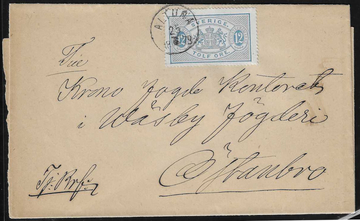 ALTUNA
SVERIGE
12 12
TOLF ÖRE
Till
Krono Jagde Kontoret
i Wäsby Jögderi
Östanbro
Tj. Brf.